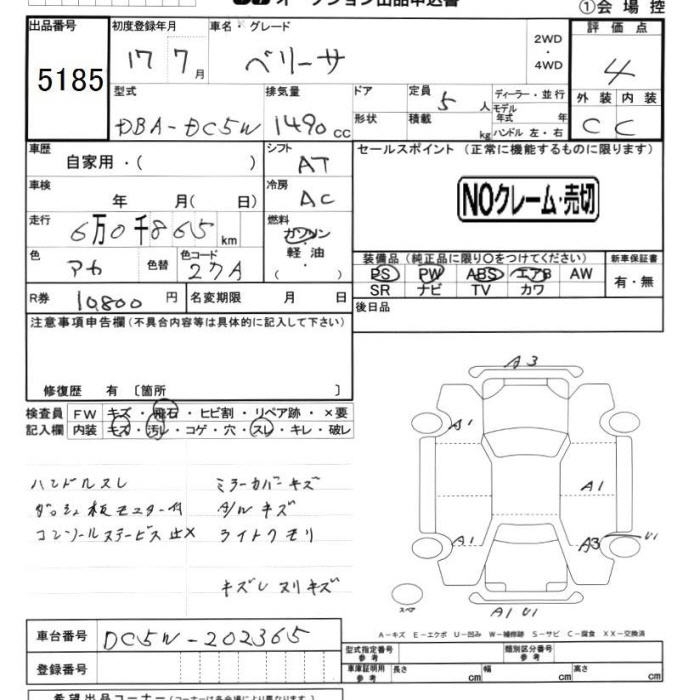 オークション出品申込書
①会場控
出品番号
5185
初度登録年月
17 7月
車名・グレード
ベリーサ
2WD・4WD
評価点
4
外装 内装
C C
型式
DBA-DC5W
排気量
1490cc
ドア
形状
定員 5人
積載 kg
ディーラー・並行
モデル年式 年
ハンドル 左・右
車歴
自家用・( )
シフト
AT
セールスポイント (正常に機能するものに限ります)
NOクレーム・売切
車検
年 月( 日)
冷房
AC
走行
6万0千865km
燃料
ガソリン
軽油
( )
色
アカ
色替
色コード
27A
装備品 (純正品に限り○をつけてください)
PS PW ABS エアB AW
SR ナビ TV カワ
新車保証書
有・無
R券 10,800円
名変期限 月 日
後日品
注意事項申告欄 (不具合内容等は具体的に記入して下さい)
修復歴 有 〔箇所 〕
検査員記入欄
FW キズ・飛石・ヒビ割・リペア跡・×要
内装 キズ・汚レ・コゲ・穴・スレ・キレ・破レ
ハンドルスレ
ダッシュ板モニター付
コンソールステービス止×
ミラーカバーキズ
A/Wキズ
ライトクモリ
キズレ ヌリキズ
A3
A1
A1
A1
A3 U1
A1 U1
スペア
A-キズ E-エクボ U-凹み W-補修跡 S-サビ C-腐食 XX-交換済
車台番号
DC5W-202365
登録番号
型式指定番号 参考
類別区分番号 参考
車庫証明用 参考
長さ cm 幅 cm 高さ cm
希望出品コーナー (コーナーは各会場により異なります。)